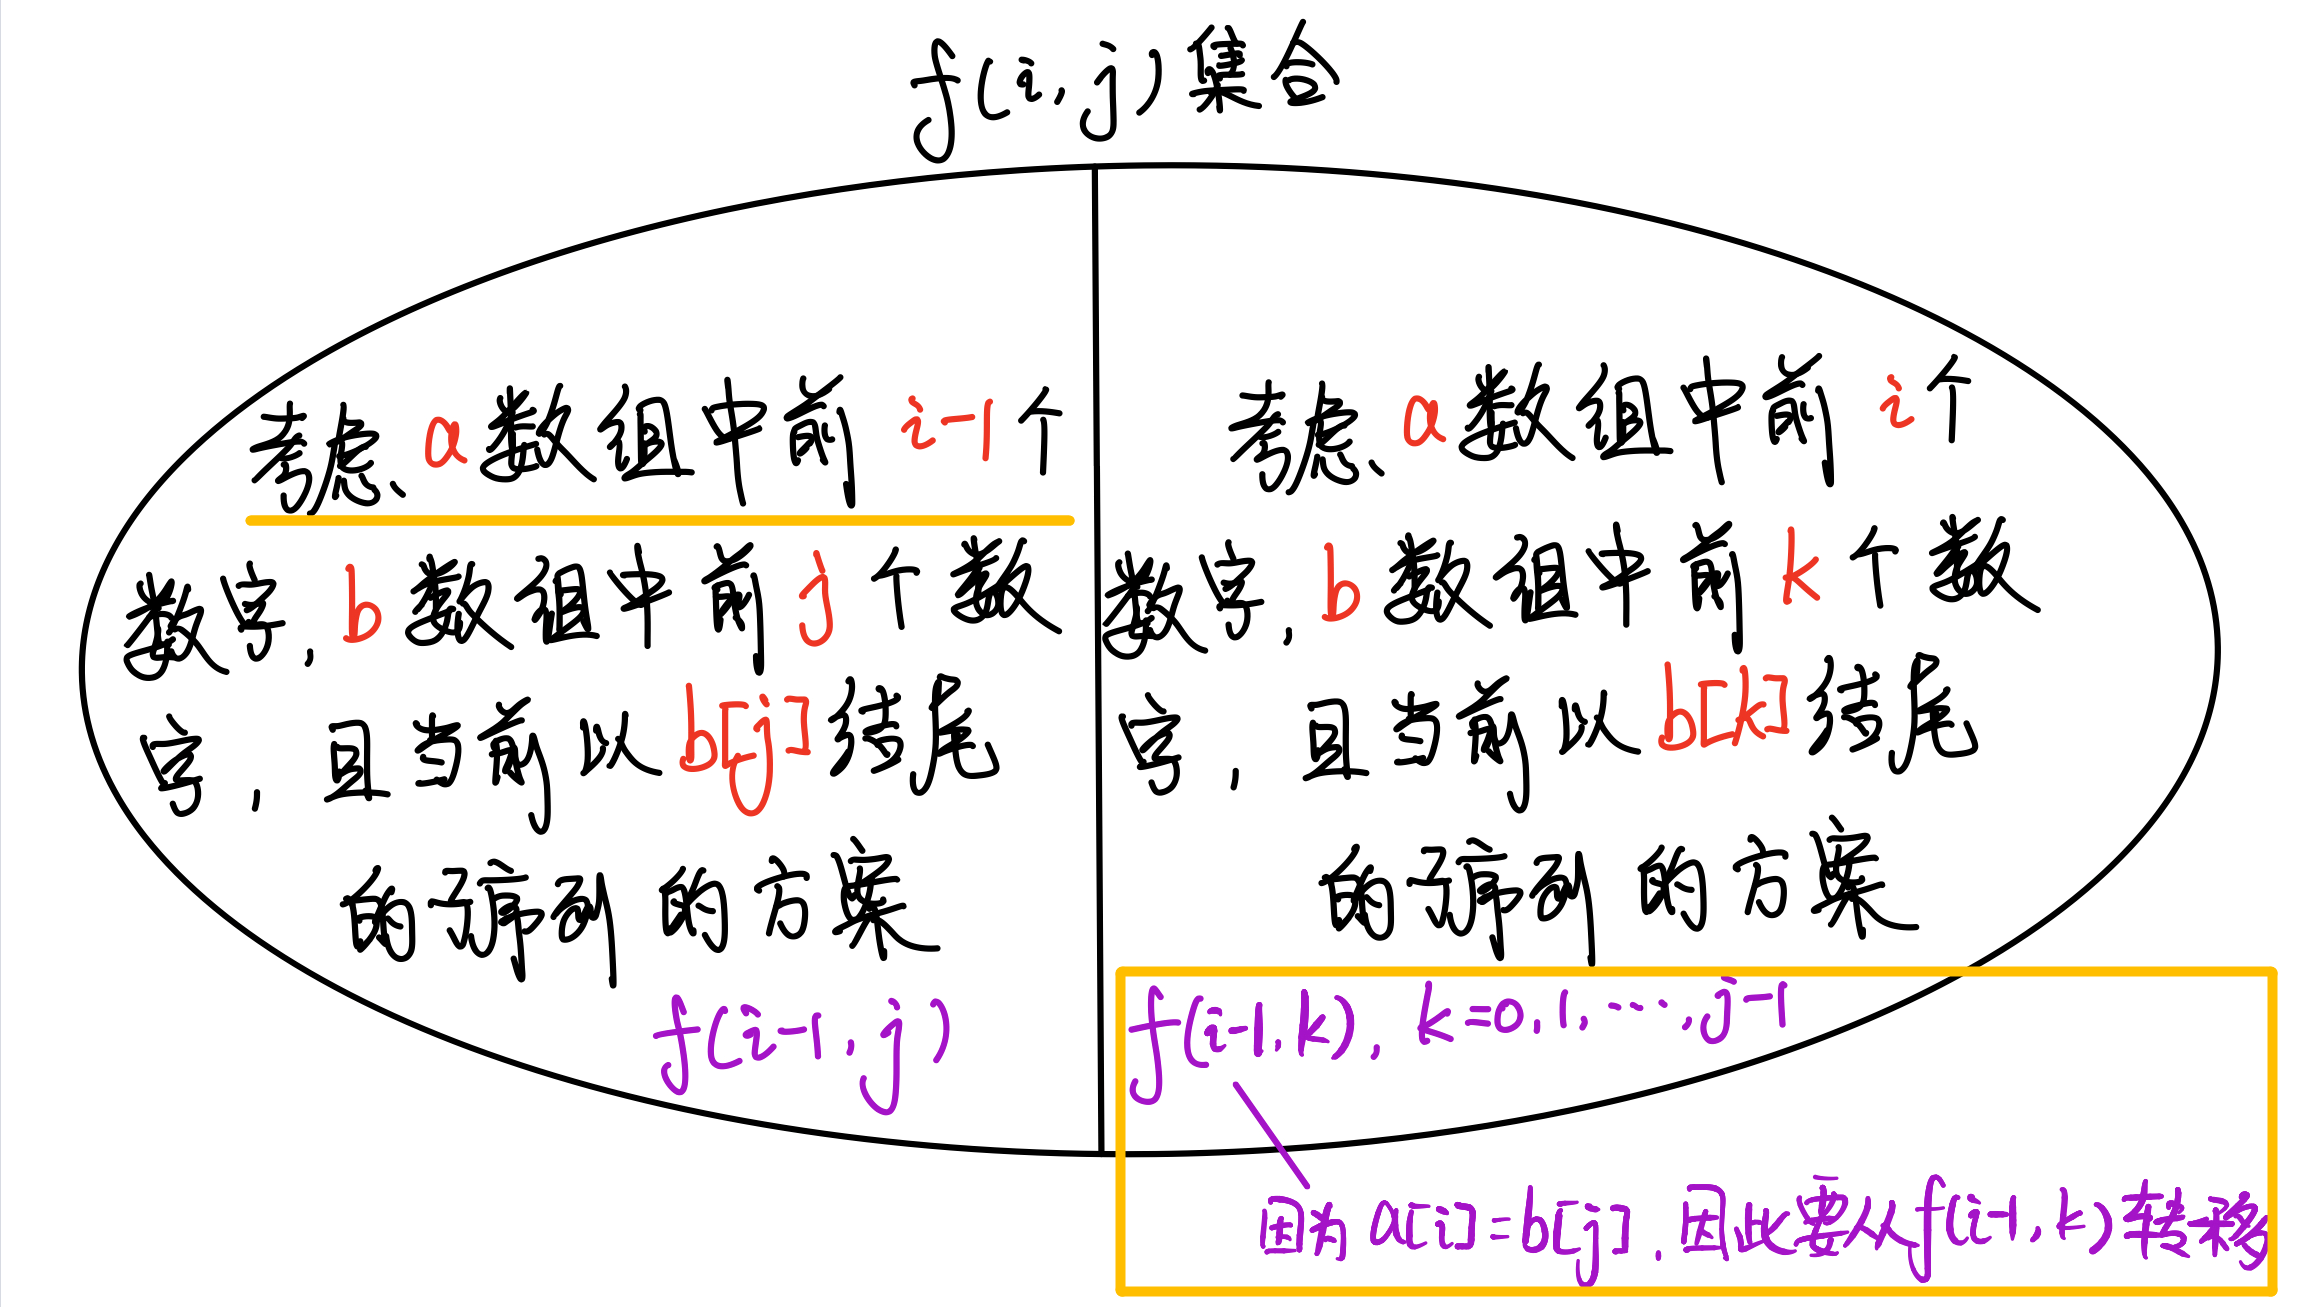 f(i,j)集合
考虑a数组中前i-1个
数字,b数组中前j个数
字,且当前以b[j]结尾
的子序列的方案
f(i-1,j)
考虑a数组中前i个
数字,b数组中前k个数
字,且当前以b[k]结尾
的子序列的方案
f(i-1,k), k=0,1,…,j-1
因为a[i]=b[j],因此要从f(i-1,k)转移